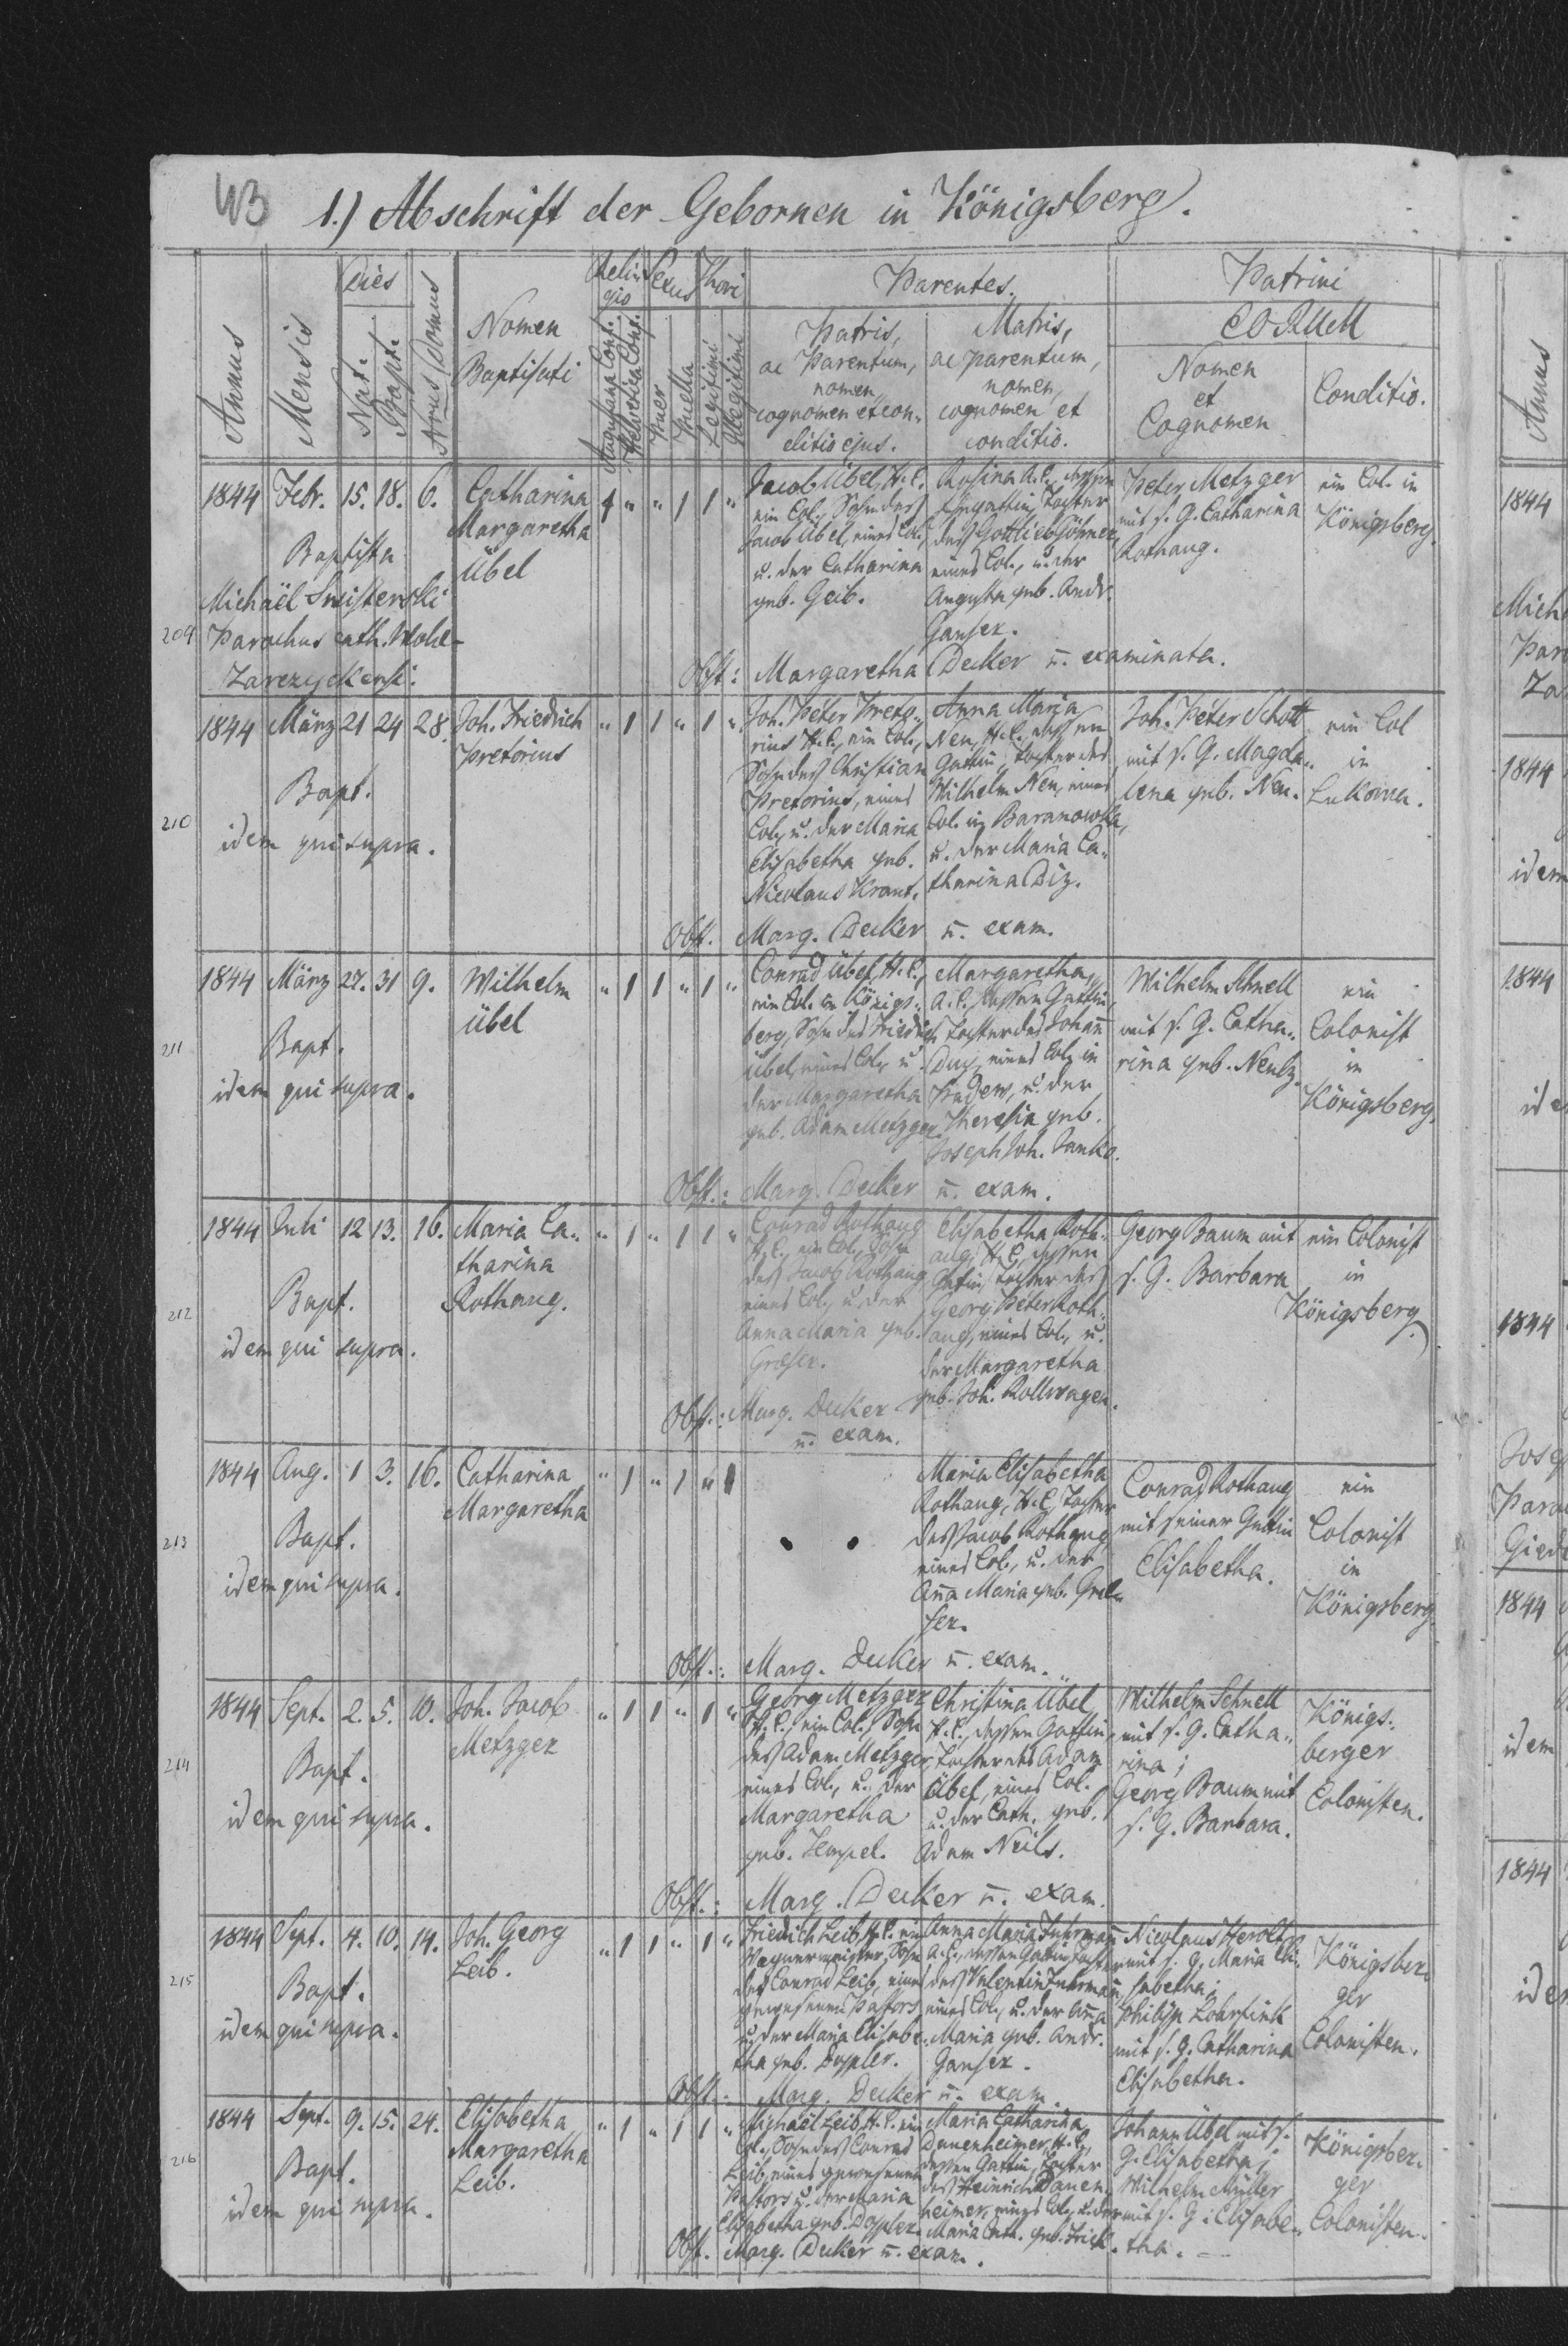 43
1.) Abschrift der Gebornen in Königsberg.
Annus
Mensis
Dies
Nat.
Bapt.
Nrus Domus
Nomen
Baptisati
Reli-
gio
Augustana Conf.
Helvetica Conf.
Sexus
Puer
Puella
Thori
Legitimi
Illegitimi
Parentes.
Patris,
ac Parentum,
nomen,
cognomen et con-
ditio ejus.
Matris,
ac parentum,
nomen,
cognomen et
conditio.
Patrini
CORUM
Nomen
et
Cognomen
Conditio.
209
1844 Febr. 15. 18. 6.
Baptista
Michaël
Parochus cath. Wola-
Zarczyckensi.
Catharina
Margaretha
Übel
1 " " 1 1 "
Jacob Übel, H.C.
ein Col., Sohn des
Jacob Übel, eines Col.,
u. der Catharina
geb. Geib.
Rosina A.C. dessen
Ehegattin, Tochter
des Gottlieb
eines Col., u. der
Augusta geb. Andr.
Ganser.
Peter Metzger
mit s. G. Catharina
Rothaug.
ein Col. in
Königsberg.
Obst.: Margaretha Decker u. examinata.
210
1844 März 21 24 28.
Bapt.
idem qui supra.
Joh. Friedrich
Pretorius
" 1 1 " 1 "
Joh. Peter Preto-
rius H.C., ein Col.,
Sohn des Christian
Pretorius, eines
Col., u. der Maria
Elisabetha geb.
Nicolaus Krant.
Anna Maria
Neu, H.C., dessen
Gattin, Tochter des
Wilhelm Neu, eines
Col. in Baranowka,
u. der Maria Ca-
tharina Diz.
Joh. Peter Schott
mit s. G. Magda-
lena geb. Neu.
ein Col
in
Lukowa.
Obst. Marg. Decker u. exam.
211
1844 März 27. 31 9.
Bapt.
idem qui supra.
Wilhelm
Übel
" 1 1 " 1 "
Conrad Übel, H.C.,
ein Col. in Königs-
berg, Sohn des Friedrich
Übel, eines Col., u.
der Margaretha
geb. Adam Metzger
Margaretha,
A.C., dessen Gattin,
Tochter des Johann
eines Col. in
u. der
Theresia geb.
Joseph Joh. Janko.
Wilhelm Schnell
mit s. G. Catha-
rina geb.
ein
Colonist
in
Königsberg.
Obst.: Marg. Decker u. exam.
212
1844 Juli 12 13. 16.
Bapt.
idem qui supra.
Maria Ca-
tharina
Rothaug.
" 1 " 1 1 "
Conrad Rothaug
H.C., ein Col., Sohn
des Jacob Rothaug
eines Col., u. der
Anna Maria geb.
Greser.
Elisabetha Roth-
aug, H.C., dessen
Gattin, Tochter des
Georg Peter Roth-
aug, eines Col., u.
der Margaretha
geb. Joh. Rollwagen.
Georg Baum mit
s. G. Barbara
ein Colonist
in
Königsberg
Obst.: Marg. Decker
u. exam.
213
1844 Aug. 1 3. 16.
Bapt.
idem qui supra.
Catharina
Margaretha
" 1 " 1 " 1
Maria Elisabetha
Rothaug, H.C., Tochter
des Jacob Rothaug
eines Col., u. der
Anna Maria geb. Gre-
ser.
Conrad Rothaug
mit seiner Gattin
Elisabetha.
ein
Colonist
in
Königsberg
Obst.: Marg. Decker u. exam.
214
1844 Sept. 2. 5. 10.
Bapt.
idem qui supra.
Joh. Jacob
Metzger
" 1 1 " 1 "
Georg Metzger
H.C., ein Col., Sohn
des Adam Metzger,
eines Col., u. der
Margaretha
geb. Tempel.
Christina Übel,
H.C., dessen Gattin,
Tochter des Adam
Übel, eines Col.
u. der Cath. geb.
Adam Neils.
Wilhelm Schnell
mit s. G. Catha-
rina;
Georg Baum mit
s. G. Barbara.
Königs-
berger
Colonisten.
Obst.: Marg. Decker u. exam.
215
1844 Sept. 4. 10. 14.
Bapt.
idem qui supra.
Joh. Georg
Leib.
" 1 1 " 1 "
Friedrich Leib, H.C. ein
Wagnermeister, Sohn
des Conrad Leib, eines
gewesenen Pastors
u. der Maria Elisabe-
tha geb. Doppler.
Anna Maria Fuhrmann
A.C., dessen Gattin, Tochter
des Valentin Fuhrmann,
eines Col., u. der Anna
Maria geb. Andr.
Ganser.
Nicolaus Herolt
mit s. G. Maria Eli-
sabetha;
Philipp
mit s. G. Catharina
Elisabetha.
Königsber-
ger
Colonisten.
Obst.: Marg. Decker u. exam
216
1844 Sept. 9. 15. 24.
Bapt.
idem qui supra.
Elisabetha
Margaretha
Leib.
" 1 " 1 1 "
Michael Leib, H.C. ein
Col., Sohn des Conrad
Leib, eines gewesenen
Pastors u. der Maria
Elisabetha geb. Doppler.
Maria Catharina
Dauenheimer, H.C.,
dessen Gattin, Tochter
des Heinrich Dauen-
heimer, eines Col., u. der
Maria Cath. geb. Frick.
Johann Übel mit s.
G. Elisabetha;
Wilhelm Müller
mit s. G. Elisabe-
tha.
Königsber-
ger
Colonisten.
Obst. Marg. Decker u. exam.
Annus
1844
Mich
Par
Za
1844
idem
1844
ide
1844
Jose
Paro
Gied
1844
idem
1844
ide